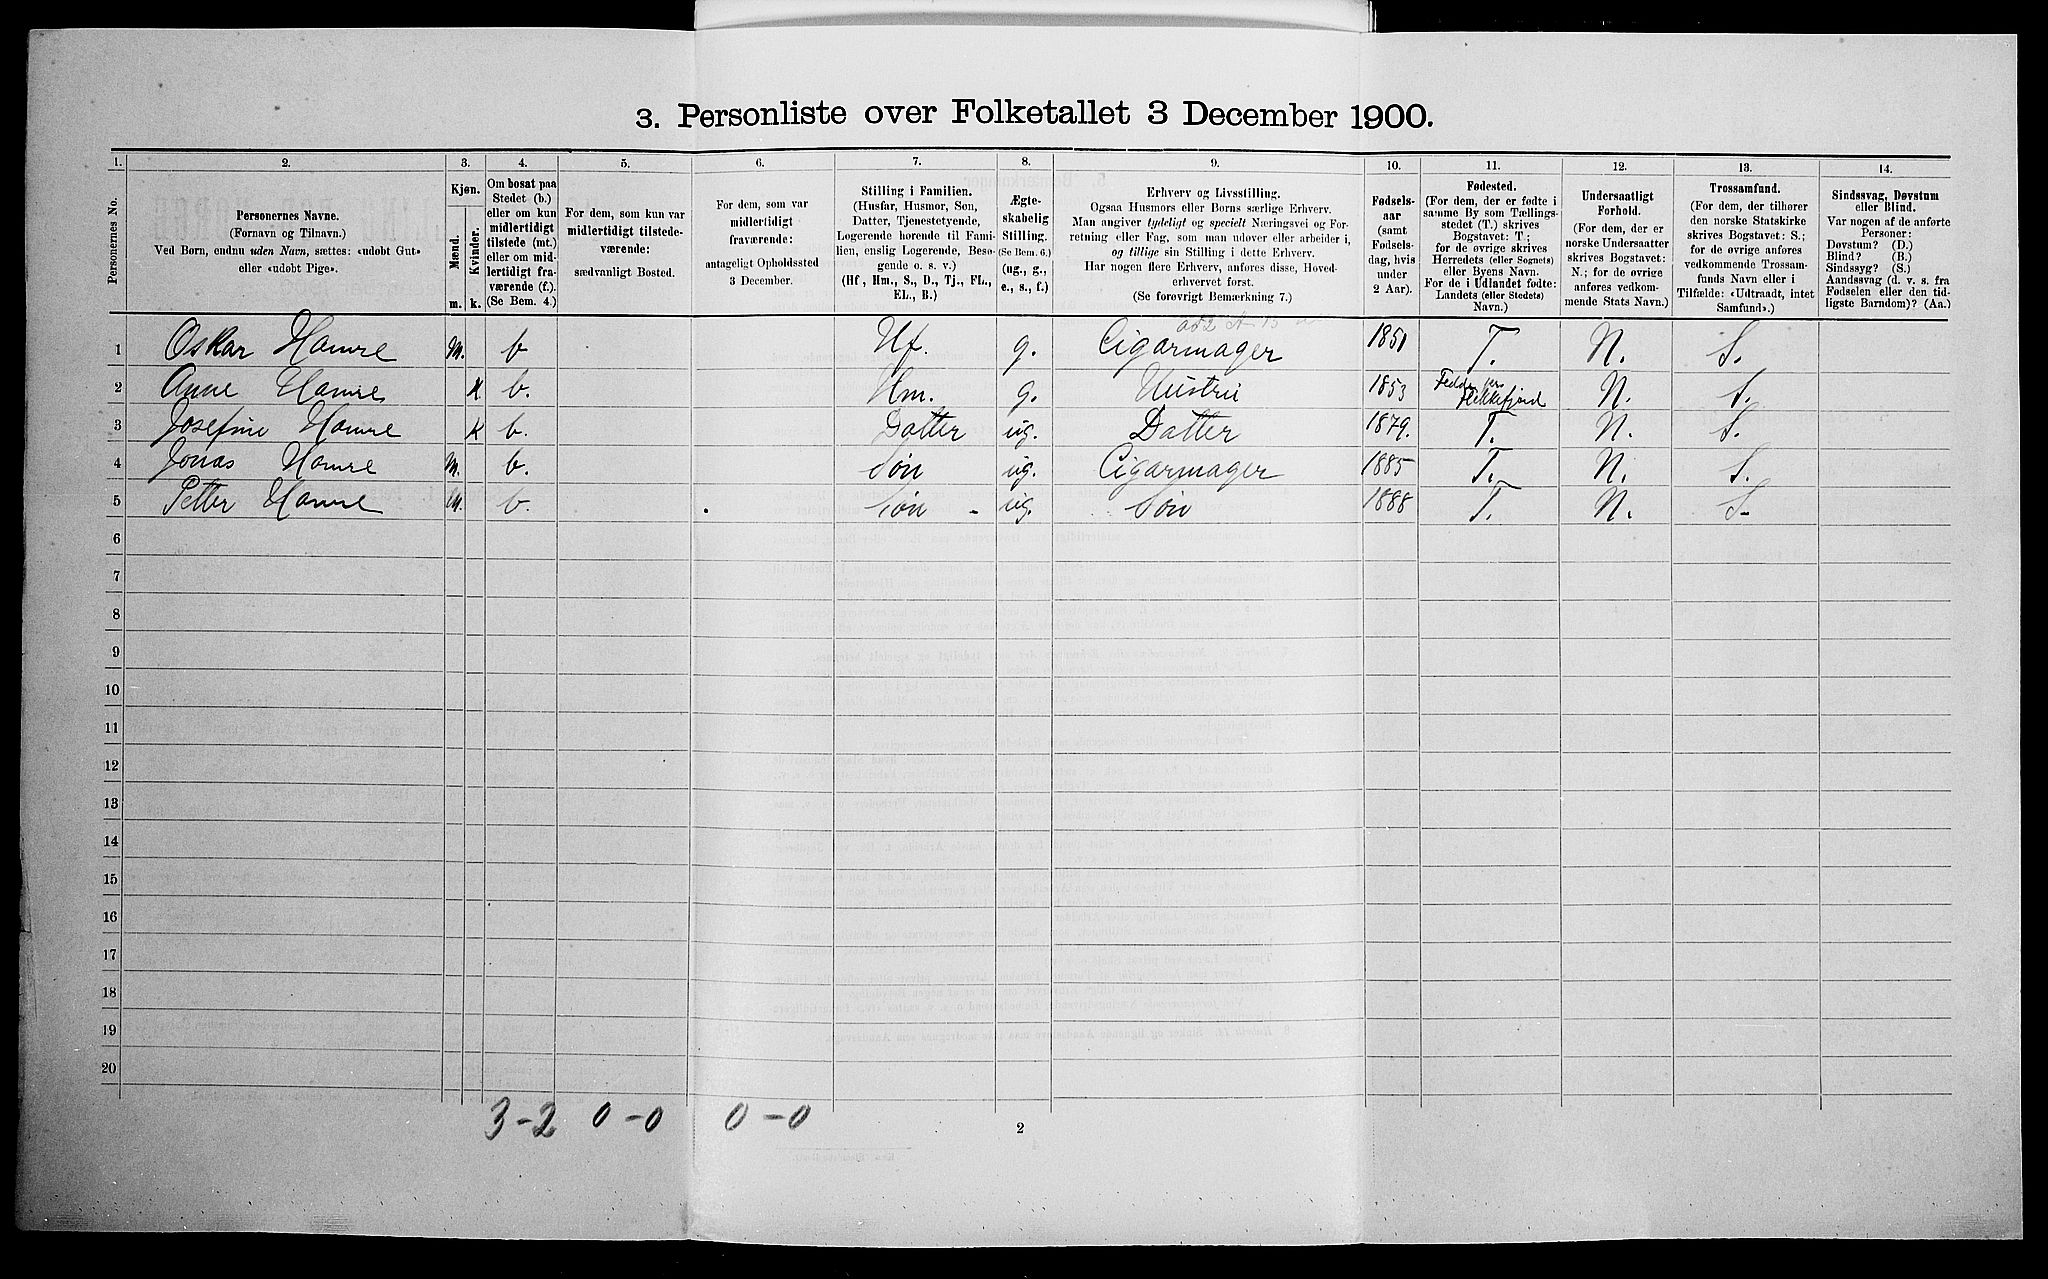 3. Personliste over Folketallet 3 December 1900.
1. 2. 3. 4. 5. 6. 7. 8. 9. 10. 11. 12. 13. 14.
Personernes No.
Personernes Navne.
(Fornavn og Tilnavn.)
Ved Børn, endnu uden Navn, sættes: «udøbt Gut»
eller «udøbt Pige».
Kjøn.
Mænd. Kvinder.
m. k.
Om bosat paa
Stedet (b.)
eller om kun
midlertidigt
tilstede (mt.)
eller om mid-
lertidigt fra-
værende (f.).
(Se Bem. 4.)
For dem, som kun var
midlertidigt tilstede-
værende:
sædvanligt Bosted.
For dem, som var
midlertidigt
fraværende:
antageligt Opholdssted
3 December.
Stilling i Familien.
(Husfar, Husmor, Søn,
Datter, Tjenestetyende,
Logerende hørende til Fami-
lien, enslig Logerende, Besø-
gende o. s. v.)
(Hf, Hm., S., D., Tj., FL.,
EL., B.)
Ægte-
skabelig
Stilling.
(Se Bem. 6.)
(ug., g.,
e., s., f.)
Erhverv og Livsstilling.
Ogsaa Husmors eller Børns særlige Erhverv.
Man angiver tydeligt og specielt Næringsvei og For-
retning eller Fag, som man udøver eller arbeider i,
og tillige sin Stilling i dette Erhverv.
Har nogen flere Erhverv, anføres disse, Hoved-
erhvervet først.
(Se forøvrigt Bemærkning 7.)
Fødsels-
aar
(samt
Fødsels-
dag, hvis
under
2 Aar).
Fødested.
(For dem, der er fødte i
samme By som Tællings-
stedet (T.) skrives
Bogstavet: T;
for de øvrige skrives
Herredets (eller Sognets)
eller Byens Navn.
For de i Udlandet fødte:
Landets (eller Stedets)
Navn.)
Undersaatligt
Forhold.
(For dem, der er
norske Undersaatter
skrives Bogstavet:
N.; for de øvrige
anføres vedkom-
mende Stats Navn.)
Trossamfund.
(For dem, der tilhører
den norske Statskirke
skrives Bogstavet: S.;
for de øvrige anføres
vedkommende Trossam-
funds Navn eller i
Tilfælde: «Udtraadt, intet
Samfund».)
Sindssvag, Døvstum
eller Blind.
Var nogen af de anførte
Personer:
Døvstum? (D.)
Blind? (B.)
Sindssyg? (S.)
Aandssvag (d. v. s. fra
Fødselen eller den tid-
ligste Barndom)? (Aa.)
1 Oskar Hamre m. b Hf. g. Cigarmager 1851 T. N. S.
2 Anne Hamre K b. Hm. g. Hustru 1853 Fedde Flekkefjord N. S.
3 Josefine Hamre K b. Datter ug. Datter 1879. T. N. S.
4 Jonas Hamre m. b. Søn ug. Cigarmager 1885 T. N. S.
5 Petter Hamre m. b. Søn - ug. Søn 1888 T. N. S.
6
7
8
9
10
11
12
13
14
15
16
17
18
19
20
3-2 0-0 0-0
2